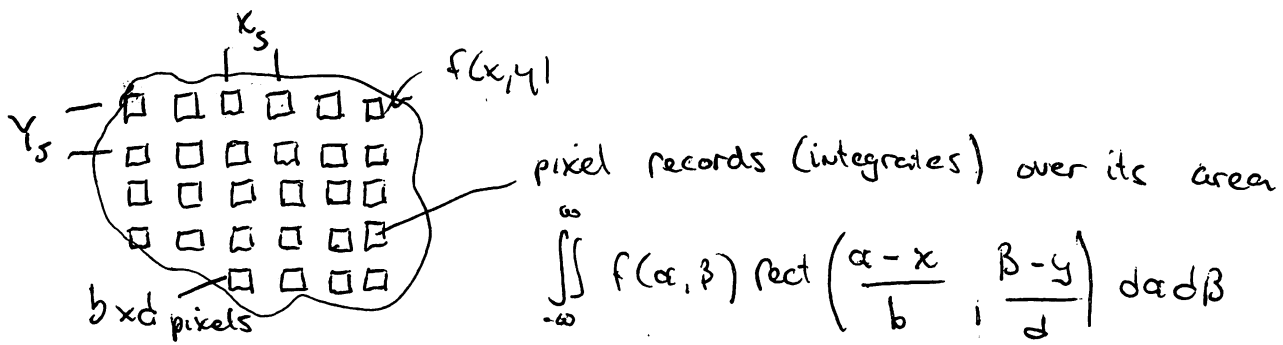 x_s
f(x,y)
Y_s
pixel records (integrates) over its area
∬_{-∞}^{∞} f(α,β) rect((α-x)/b, (β-y)/d) dα dβ
b x d pixels